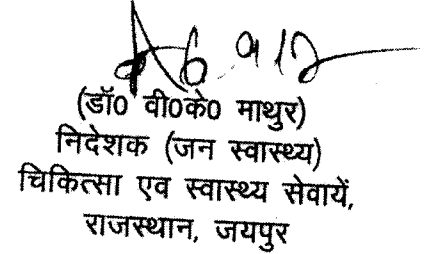 (डॉ0 वी0के0 माथुर)
निदेशक (जन स्वास्थ्य)
चिकित्सा एव स्वास्थ्य सेवायें,
राजस्थान, जयपुर